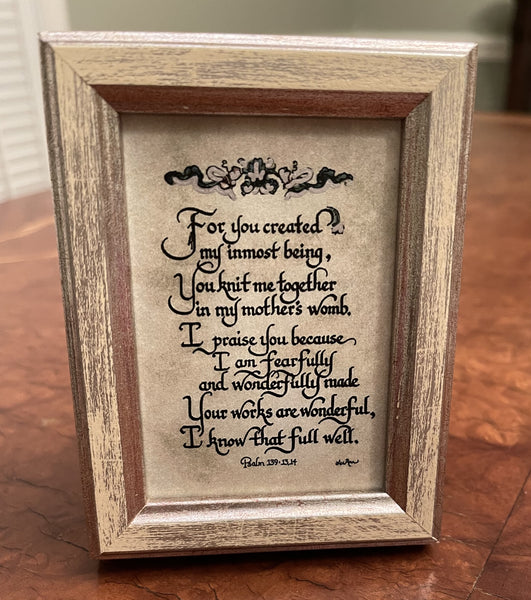 For you created
my inmost being,
You knit me together
in my mother's womb.
I praise you because
I am fearfully
and wonderfully made
Your works are wonderful,
I know that full well.
Psalm 139:13,14